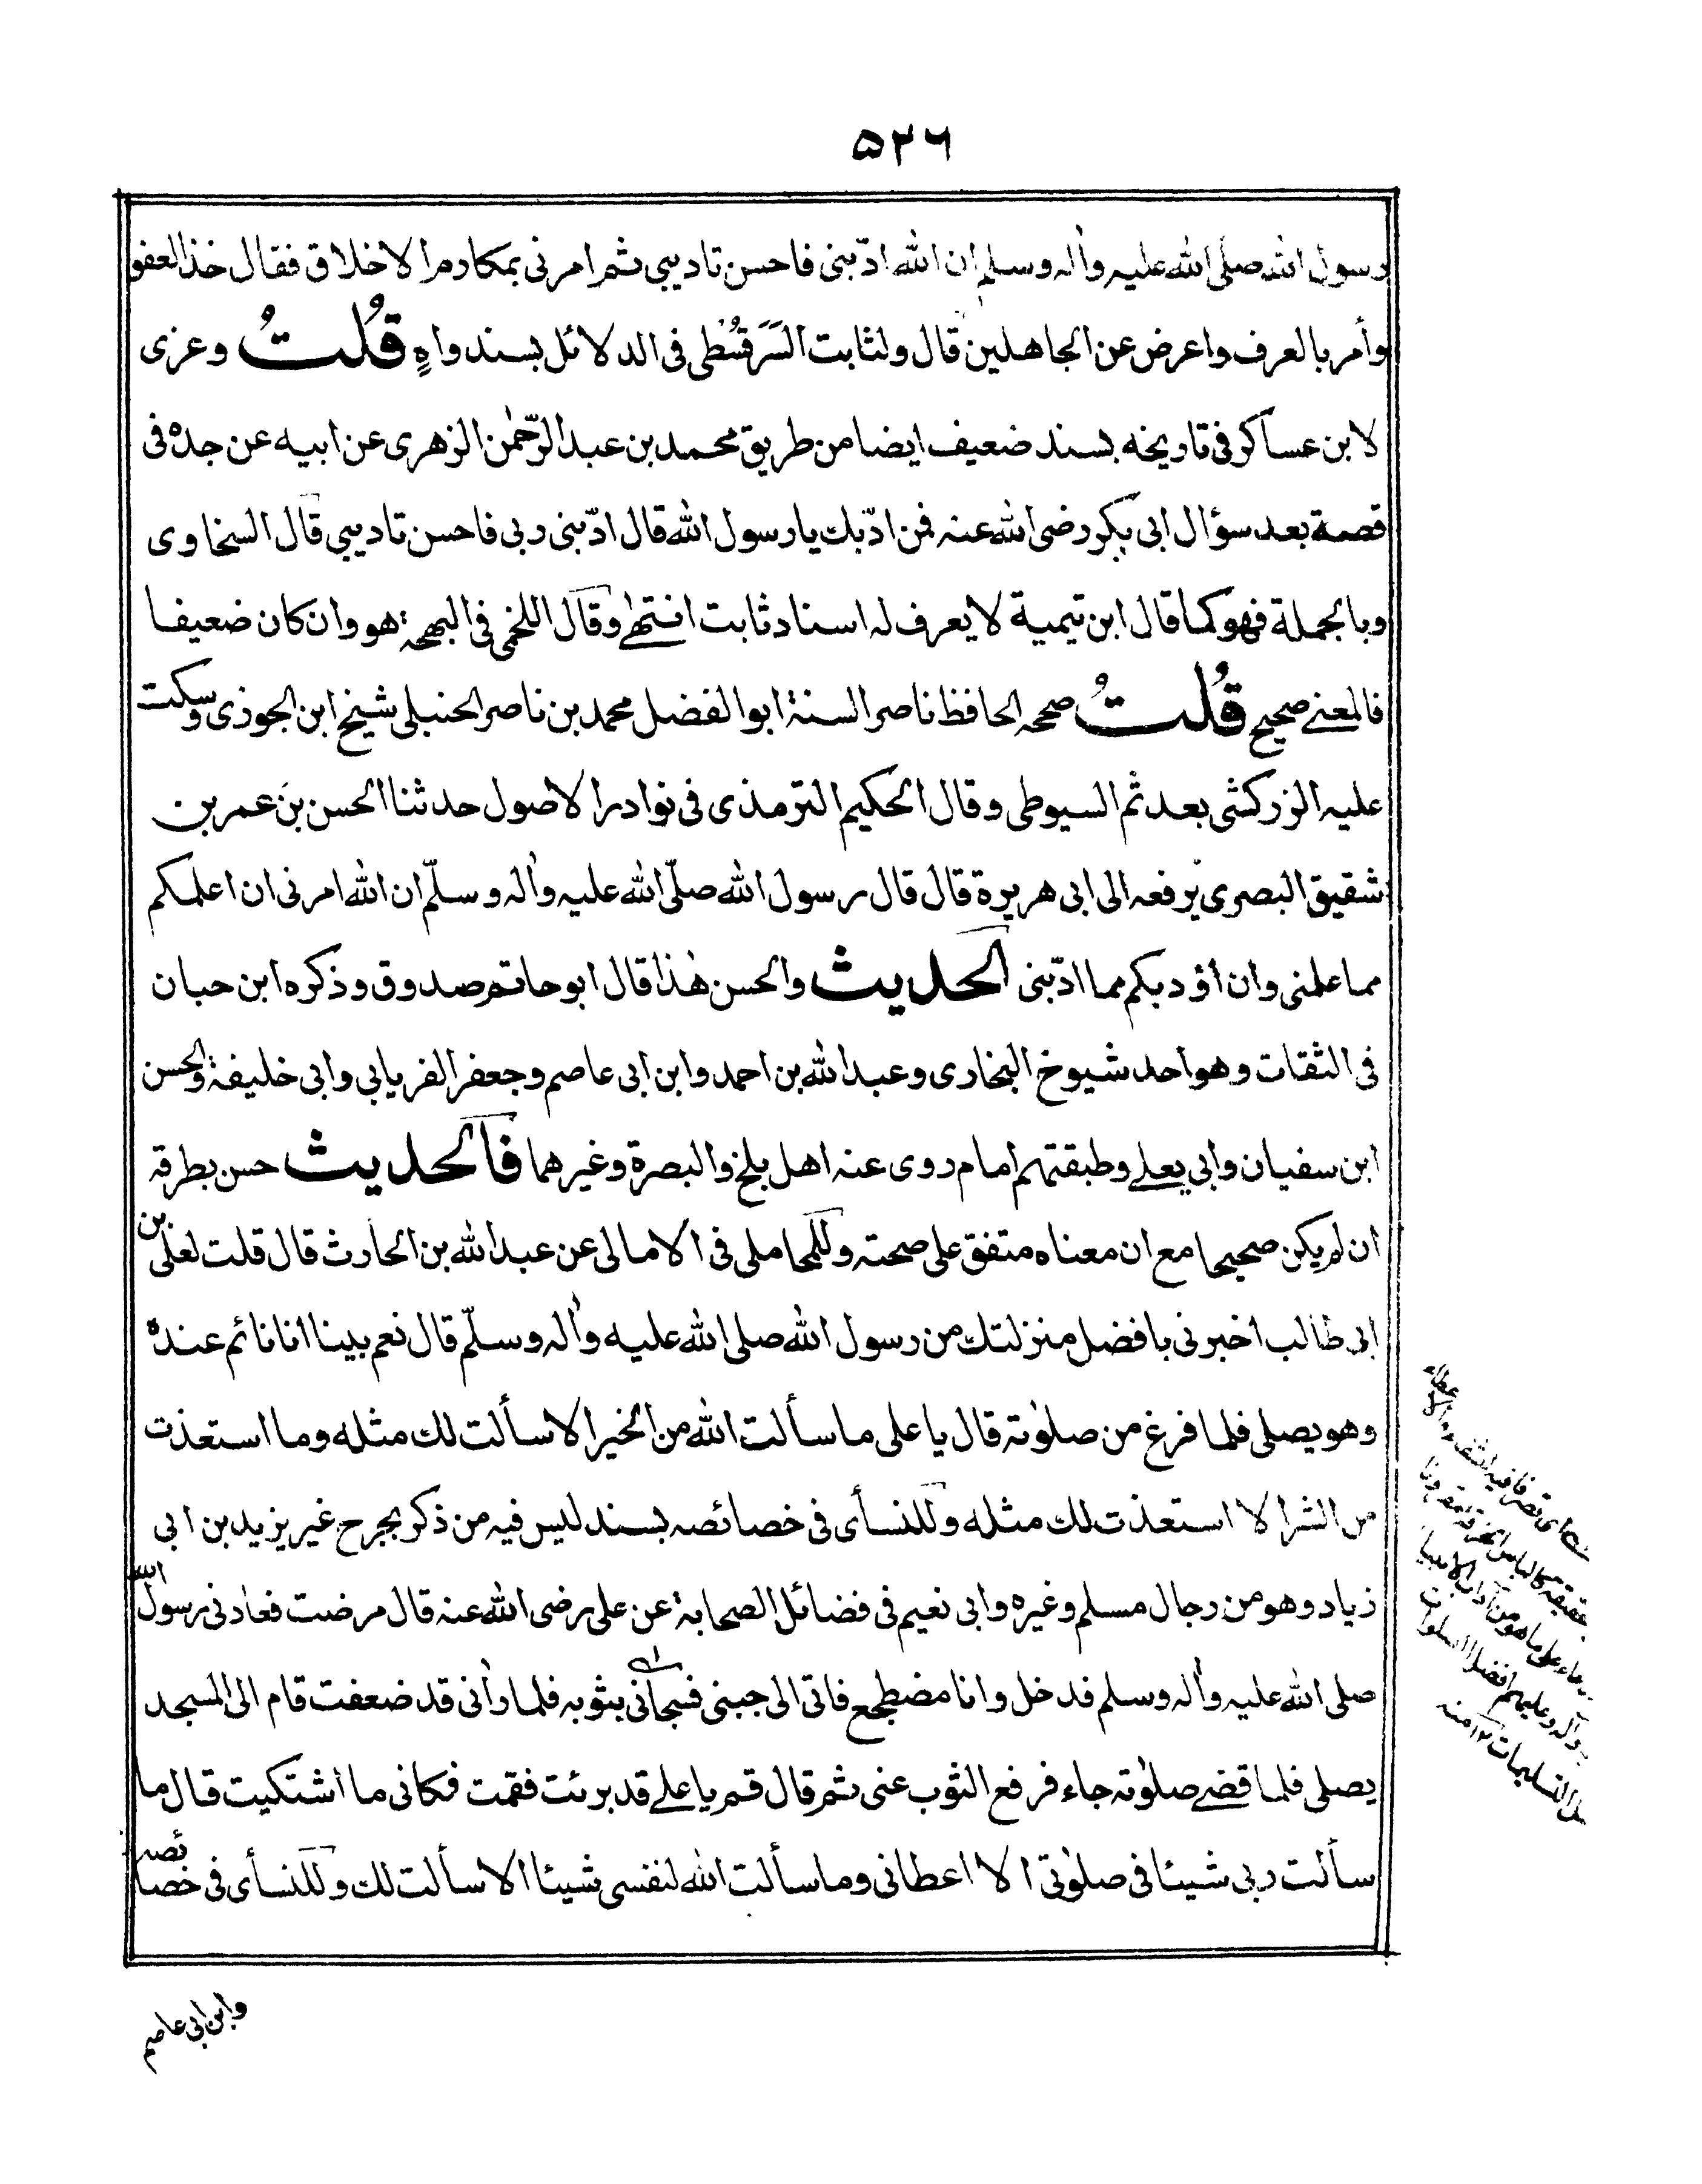 ۵۲۶
رسول الله صلى الله عليه واٰله وسلم ان الله ادّبنى فاحسن تاديبى ثم امرنى بمكارم الاخلاق فقال خذ العفو
وأمر بالعرف واعرض عن الجاهلين قال ولثابت السَّرَقُسْطى فى الدلائل بسند واهٍ قُلتُ وعزى
لابن عساكر فى تاريخه بسند ضعيف ايضا من طريق محمد بن عبد الرّحمٰن الزهرى عن ابيه عن جده فى
قصة بعد سؤال ابى بكر رضى الله عنه فمن ادّبك يا رسول الله قال ادّبنى ربى فاحسن تاديبى قال السخاوى
وبالجملة فهو كما قال ابن تيمية لا يعرف له اسناد ثابت انتهٰى وقال اللخمى فى البهجة هو وان كان ضعيفا
فالمعنے صحيح قُلتُ صححه الحافظ ناصر السنة ابو الفضل محمد بن ناصر الحنبلى شيخ ابن الجوزى وسكت
عليه الزركشى بعد ثم السيوطى وقال الحكيم الترمذى فى نوادر الاصول حدثنا الحسن بن عمر بن
شقيق البصرى يرفعه الى ابى هريرة قال قال رسول الله صلّى الله عليه واٰله وسلّم ان الله امرنى ان اعلمكم
مما علمنى وان أؤدبكم مما ادّبنى الحديث والحسن هٰذا قال ابو حاتم صدوق وذكره ابن حبان
فى الثقات وهو احد شيوخ البخارى وعبد الله بن احمد وابن ابى عاصم وجعفر الفريابى وابى خليفة والحسن
ابن سفيان وابى يعلے وطبقتهم امام روى عنه اهل بلخ والبصرة وغيرهما فالحديث حسن بطرقه
ان لم يكن صحيحا مع ان معناه متفق على صحته وللمحاملى فى الامالى عن عبد الله بن الحارث قال قلت لعلى بن
ابى طالب اخبرنى بافضل منزلتك من رسول الله صلى الله عليه واٰله وسلّم قال نعم بينا انا نائم عنده
وهو يصلى فلما فرغ من صلوٰته قال يا على ما سألت الله من الخير الا سألت لك مثله وما استعذت
من الشر الا استعذت لك مثله وللنسأى فى خصائصه بسند ليس فيه من ذكر بجرح غير يزيد بن ابى
زياد وهو من رجال مسلم وغيره وابى نعيم فى فضائل الصحابة عن على رضى الله عنه قال مرضت فعادنى رسول الله
صلى الله عليه واٰله وسلم فدخل وانا مضطجع فاتى الى جبنى فسجانى بثوبه فلما راٰنى قد ضعفت قام الى المسجد
يصلى فلما قضے صلوٰته جاء فرفع الثوب عنى ثم قال قم يا علے قد برئت فقمت فكانى ما اشتكيت قال ما
سألت ربى شيئا فى صلوٰتى الا اعطانى وما سألت الله لنفسى شيئا الا سألت لك وللنسأى فى خصائصه
وابن ابى عاصم